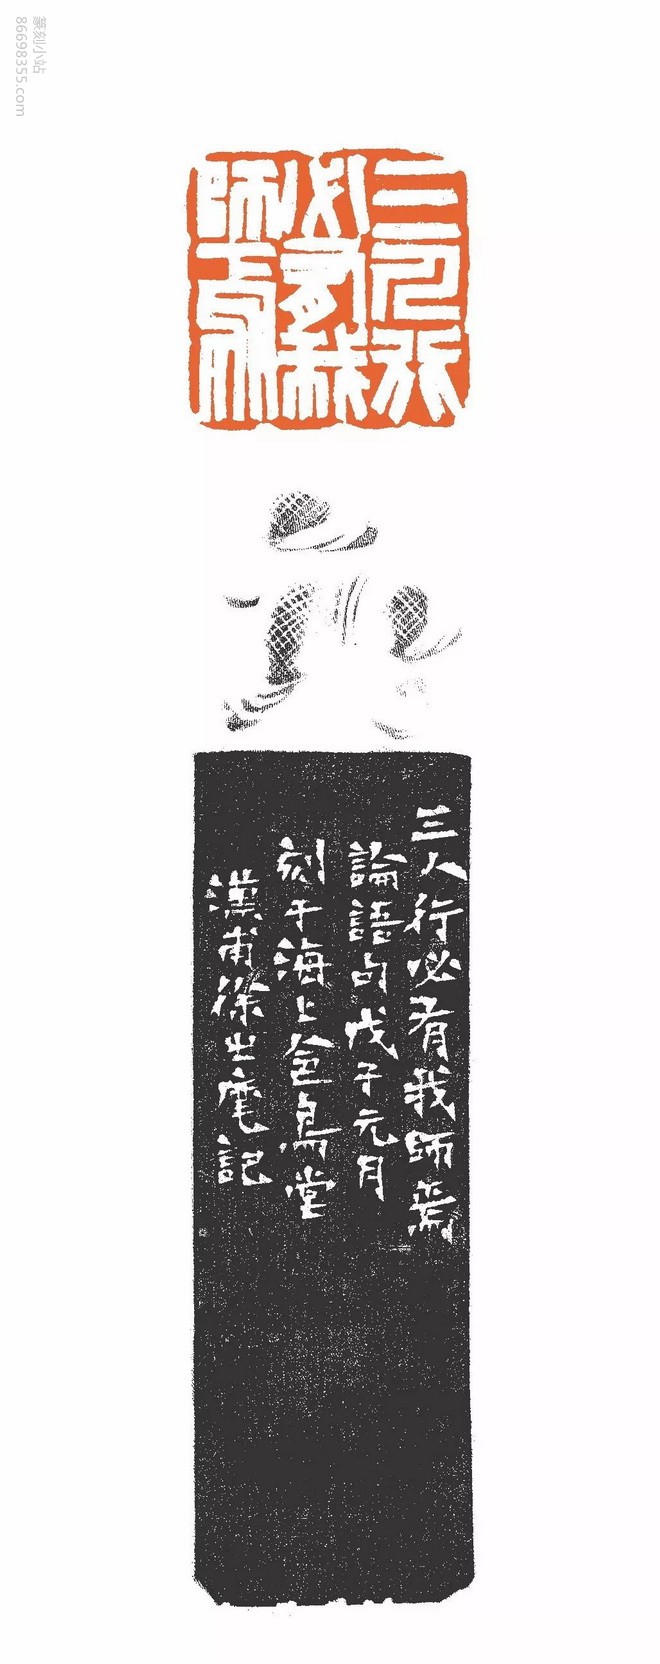 篆刻小站
86698355.com
三人行
必有我
師焉
三人行必有我師焉
論語句戊子元月
刻于海上爸鳥堂
漢甫徐之麾記